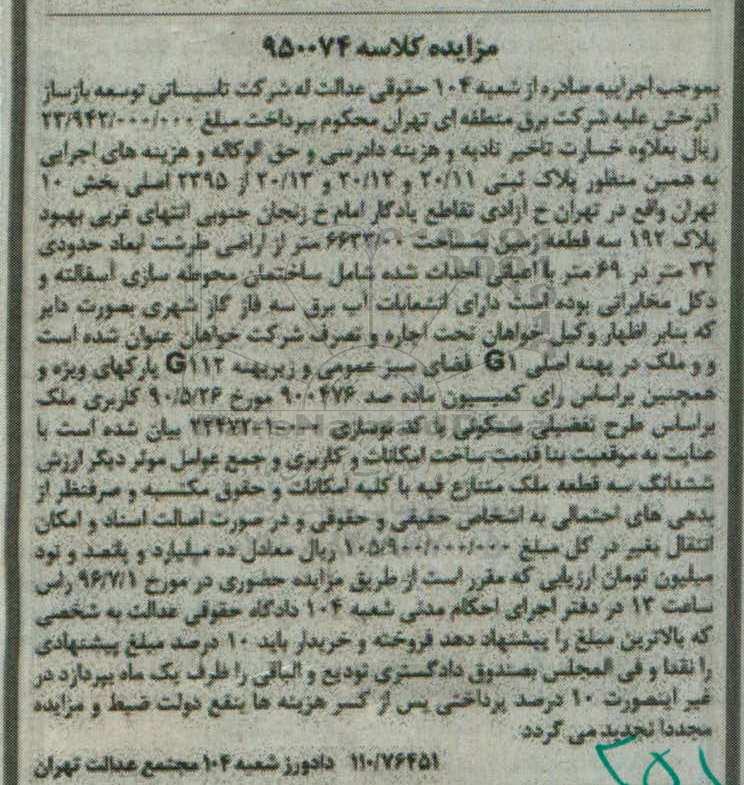 مزایده کلاسه ۹۵۰۰۷۴
بموجب اجراییه صادره از شعبه ۱۰۴ حقوقی عدالت له شرکت تاسیساتی توسعه بازساز
آذرخش علیه شرکت برق منطقه ای تهران محکوم بپرداخت مبلغ ۲۳/۹۴۲/۰۰۰/۰۰۰
ریال بعلاوه خسارت تاخیر تادیه و هزینه دادرسی و حق الوکاله و هزینه های اجرایی
به همین منظور پلاک ثبتی ۲۰/۱۱ و ۲۰/۱۲ و ۲۰/۱۳ از ۲۳۹۵ اصلی بخش ۱۰
تهران واقع در تهران خ آزادی تقاطع یادگار امام خ زنجان جنوبی انتهای غربی بهبود
پلاک ۱۹۲ سه قطعه زمین بمساحت ۶۶۳۲/۰۰ متر از اراضی طرشت ابعاد حدودی
۳۲ متر در ۶۹ متر با اعیانی احداث شده شامل ساختمان محوطه سازی آسفالته و
دکل مخابراتی بوده است دارای انشعابات آب برق سه فاز گاز شهری بصورت دایر
که بنابر اظهار وکیل خواهان تحت اجاره و تصرف شرکت خواهان عنوان شده است
و و ملک در پهنه اصلی G۱ فضای سبز عمومی و زیرپهنه G۱۱۲ پارکهای ویژه و
همچنین براساس رای کمیسیون ماده صد ۹۰۰۴۷۶ مورخ ۹۰/۵/۲۶ کاربری ملک
براساس طرح تفضیلی مسکونی با کد نوسازی بیان شده است با
عنایت به موقعیت بنا قدمت ساخت امکانات و کاربری و جمع عوامل موثر دیگر ارزش
ششدانگ سه قطعه ملک متنازع فیه با کلیه امکانات و حقوق مکتسبه و صرفنظر از
بدهی های احتمالی به اشخاص حقیقی و حقوقی و در صورت اصالت اسناد و امکان
انتقال بغیر در کل مبلغ ۱۰۵/۹۰۰/۰۰۰/۰۰۰ ریال معادل ده میلیارد و پانصد و نود
میلیون تومان ارزیابی که مقرر است از طریق مزایده حضوری در مورخ ۹۶/۷/۱ راس
ساعت ۱۳ در دفتر اجرای احکام مدنی شعبه ۱۰۴ دادگاه حقوقی عدالت به شخصی
که بالاترین مبلغ را پیشنهاد دهد فروخته و خریدار باید ۱۰ درصد مبلغ پیشنهادی
را نقدا و فی المجلس بصندوق دادگستری تودیع و الباقی را ظرف یک ماه بپردازد در
غیر اینصورت ۱۰ درصد پرداختی پس از کسر هزینه ها بنفع دولت ضبط و مزایده
مجددا تجدید می گردد
۱۱۰/۷۶۴۵۱ دادورز شعبه ۱۰۴ مجتمع عدالت تهران